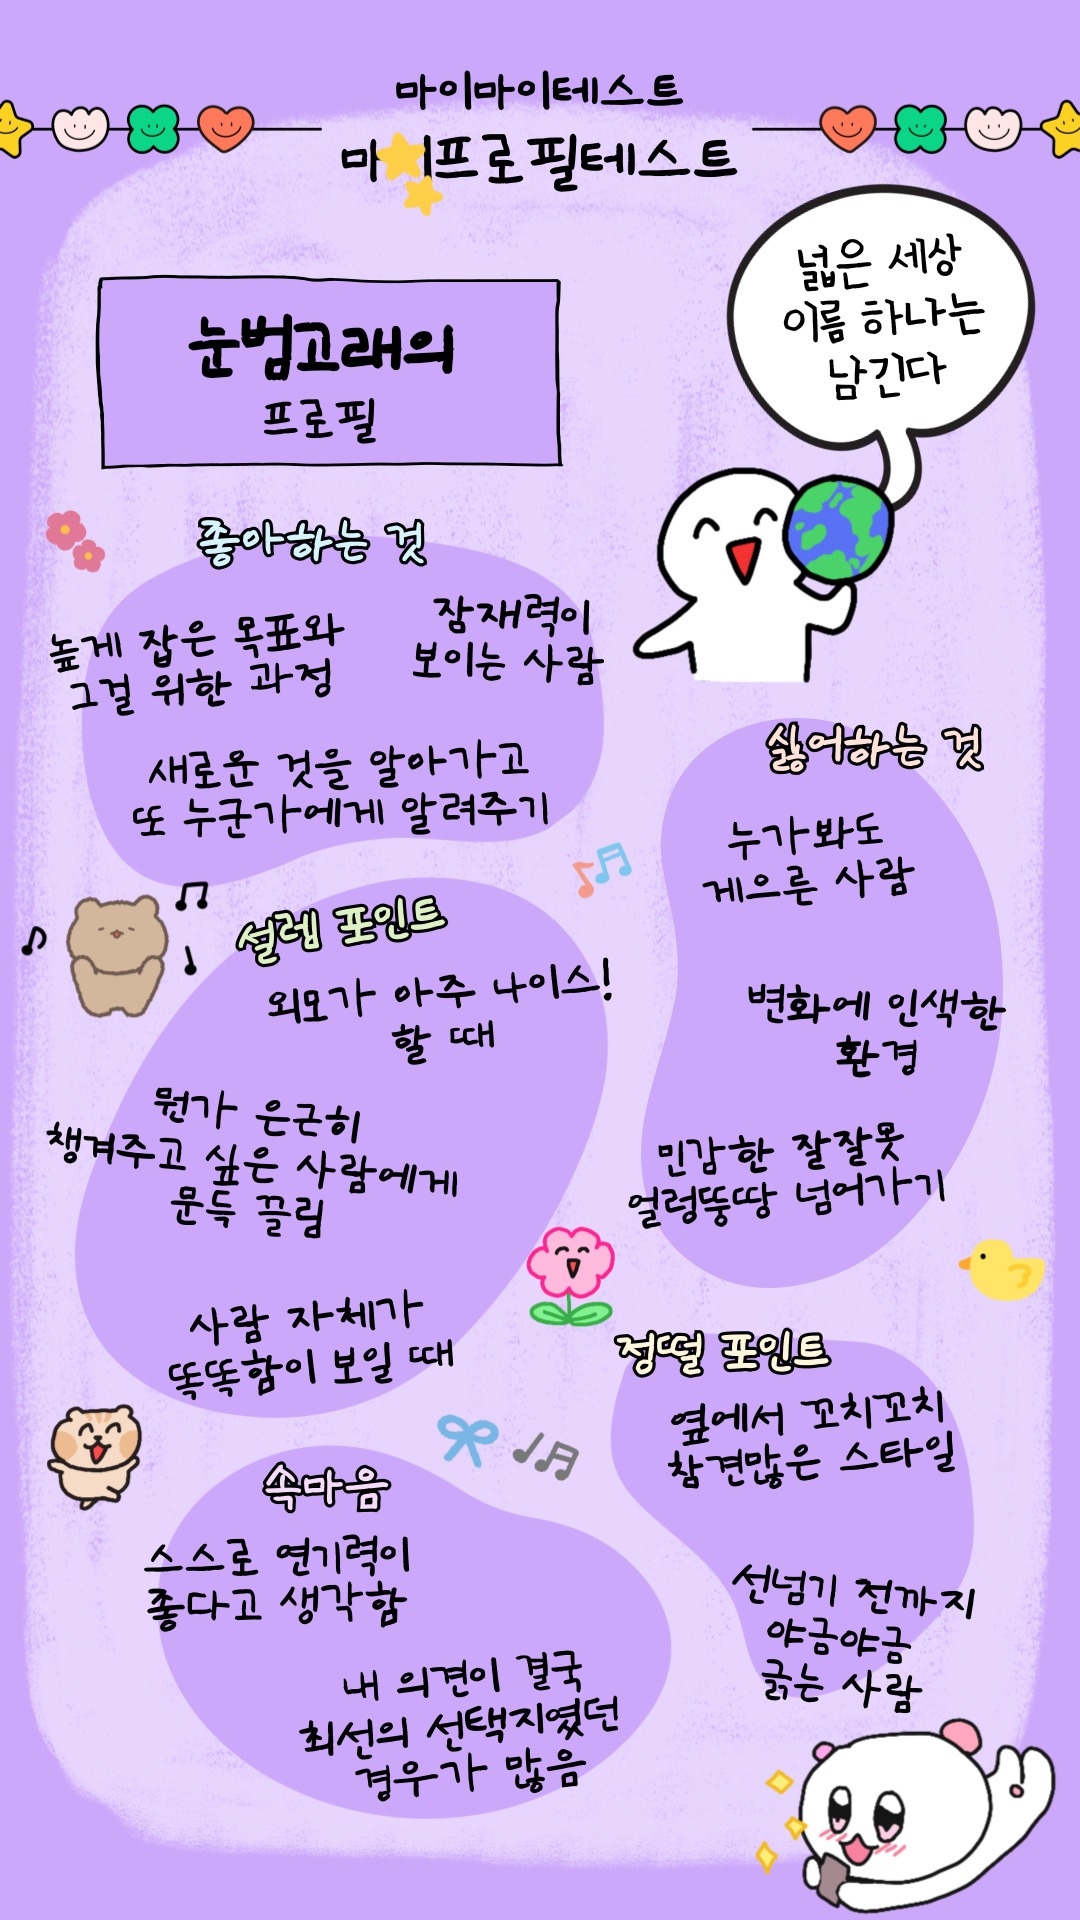 마이마이테스트
마이프로필테스트
넓은 세상
이름 하나는
남긴다
눈범고래의
프로필
좋아하는 것
높게 잡은 목표와
그걸 위한 과정
잠재력이
보이는 사람
새로운 것을 알아가고
또 누군가에게 알려주기
싫어하는 것
누가봐도
게으른 사람
변화에 인색한
환경
민감한 잘잘못
얼렁뚱땅 넘어가기
설렘 포인트
외모가 아주 나이스!
할 때
뭔가 은근히
챙겨주고 싶은 사람에게
문득 끌림
사람 자체가
똑똑함이 보일 때
정떨 포인트
옆에서 꼬치꼬치
참견많은 스타일
선넘기 전까지
야금야금
긁는 사람
속마음
스스로 연기력이
좋다고 생각함
내 의견이 결국
최선의 선택지였던
경우가 많음